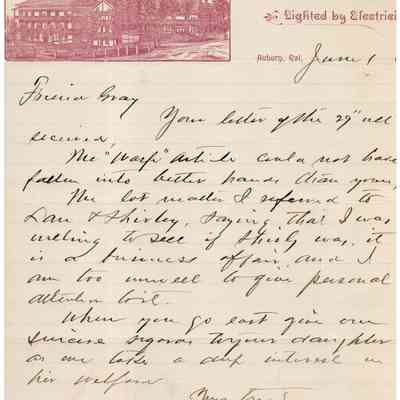 Lighted by Electrici
Auburn, Cal. June 1
Friend Gray
Your letter of the 29" ult
received,
The "Warp" Article could not have
fallen into better hands than yours,
The lot matter I referred to
Lan & Shirley, saying that I was
willing to sell if Shirly was. it
is a business affair and I
am too unwell to give personal
attention to it.
When you go east give our
sincere regards to your daughter
as we take a deep interest in
her welfare